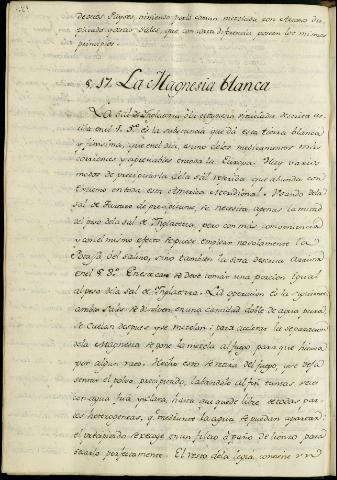 de estos Payses, viniendo por lo comun mezclada con Arcano du-
plicado y otras Sales, que con corta diferencia poseen los mismos
principios.
§. 17. La Magnesia blanca
La Sal de Inglaterra ó la Magnesia vitriolada descrita ar-
riba en el §. 5º. es la substancia que dá esta tierra blanca
y finisima, que en el dia, es uno de los medicamentos más
corrientes y apreciables en toda la Europa. Hay varios
modos de precipitarla de la sal referida que abunda con
extremo en toda esta America Meridional. Usando de la
sal de Tartaro de precipitante, se necesita apenas la mitad
del peso de la sal de Inglaterra, pero con más conveniencia
y con el mismo efecto se puede emplear no solamente la
sino tambien la Sosa descrita arriba
en el §. 8º. En este caso se debe tomar una porcion igual
al peso de la sal de Inglaterra. La operacion es la siguiente:
ambas Sales se disuelven en una cantidad doble de agua pura,
se cuelan despues y se mezclan: para acelerar la separacion
de la Magnesia se pone la mezcla al fuego para que hierva
por algun rato. Hecho esto se retira del fuego, y se dexa
sentar el polvo precipitado, labandolo al fin tantas veces
con agua fria y clara, hasta que quede libre de todas par-
tes heterogeneas, q. mediante la agua se puedan apartar:
el precipitado se recoge en un filtro ó paño de lienzo para
secarlo perfectamente. El resto de la legia, contiene un